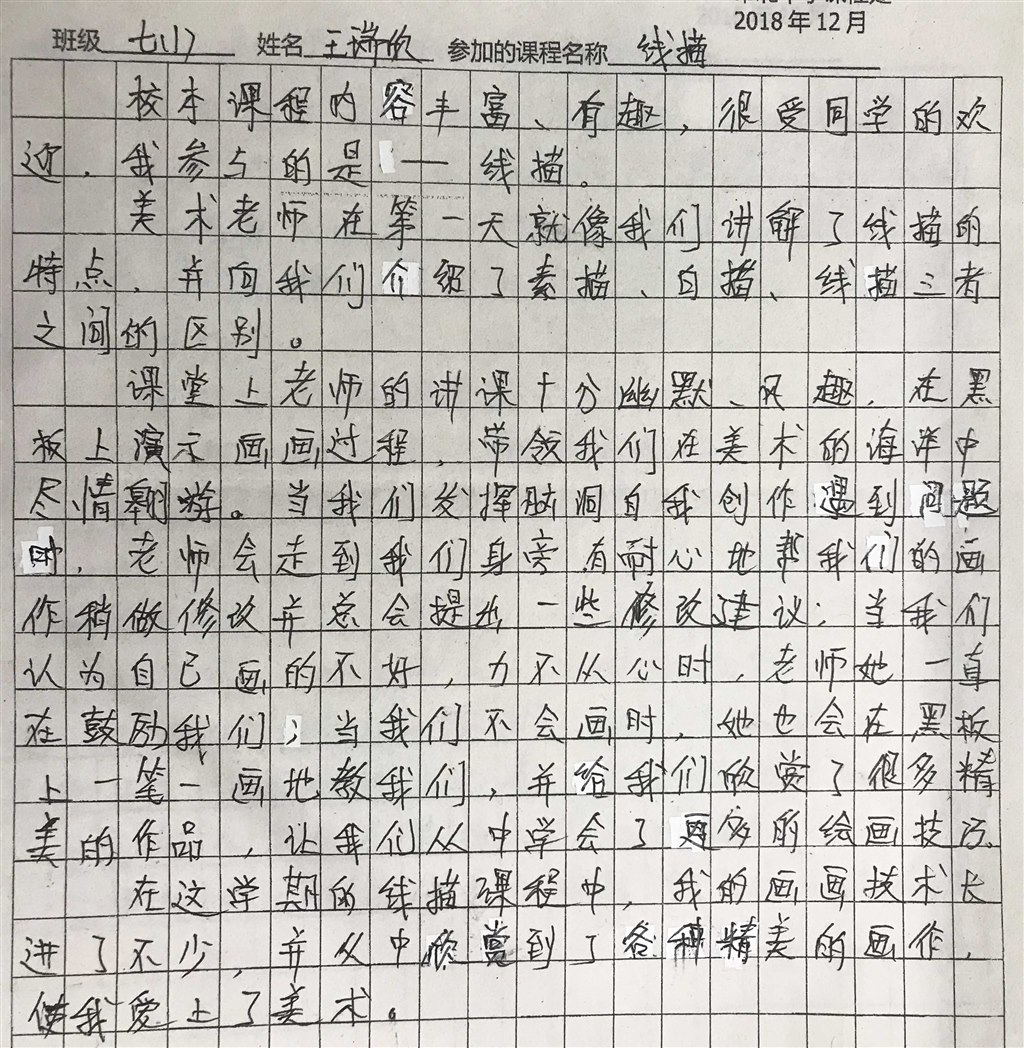 2018年12月
班级 七(1) 姓名 王瑞欣 参加的课程名称 线描
校本课程内容丰富、有趣，很受同学的欢
迎。我参与的是——线描。
美术老师在第一天就像我们讲解了线描的
特点，并向我们介绍了素描、白描、线描三者
之间的区别。
课堂上老师的讲课十分幽默、风趣，在黑
板上演示画画过程，带领我们在美术的海洋中
尽情翱游。当我们发挥脑洞自我创作遇到问题
时，老师会走到我们身旁有耐心地帮我们的画
作稍做修改并总会提出一些修改建议；当我们
认为自己画的不好，力不从心时，老师她一直
在鼓励我们；当我们不会画时，她也会在黑板
上一笔一画地教我们，并给我们欣赏了很多精
美的作品，让我们从中学会了更多的绘画技巧。
在这学期的线描课程中，我的画画技术长
进了不少，并从中欣赏到了各种精美的画作，
使我爱上了美术。